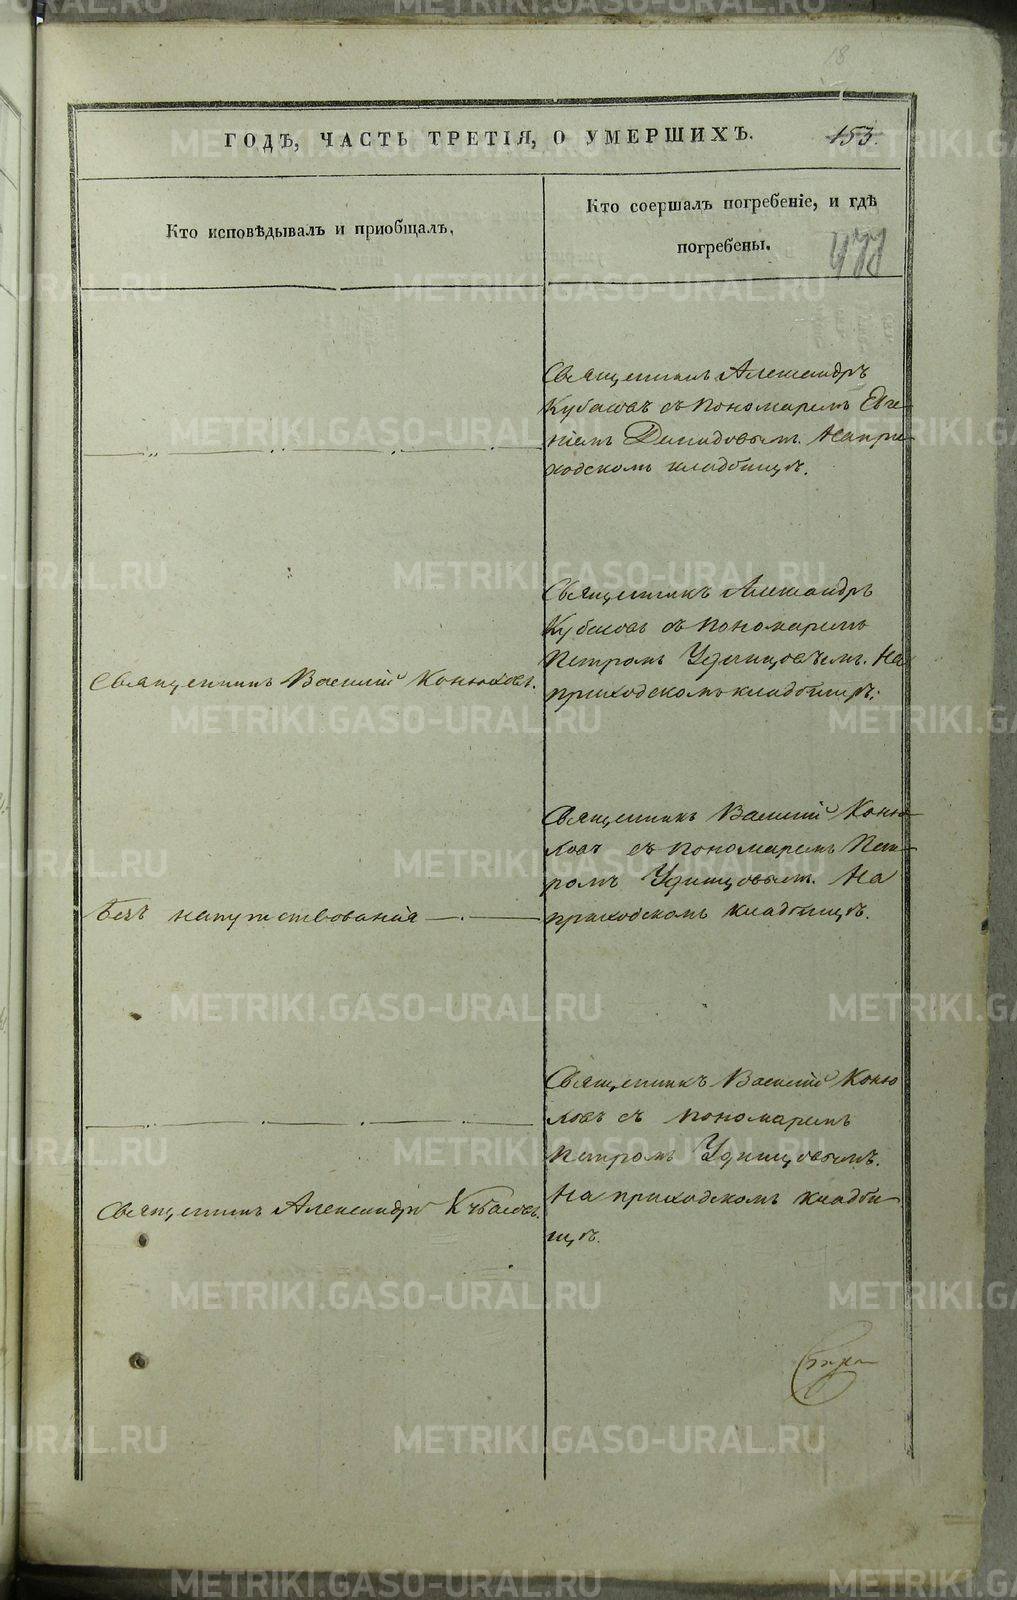 18
ГОДѢ, ЧАСТЬ ТРЕТІЯ, О УМЕРШИХЪ.
153.
Кто исповѣдывалъ и приобщалъ.
Кто соершалъ погребеніе, и гдѣ
погребены.
Священникъ Александръ
Кубасовъ съ пономаремъ Евге-
ніемъ Демидовымъ. На при-
ходскомъ кладбищѣ.
Священникъ Василій Конюховъ.
Священникъ Александръ
Кубасовъ съ пономаремъ
Петромъ Удинцовымъ. На
приходскомъ кладбищѣ.
Безъ напутствованія
Священникъ Василій Коню-
ховъ съ пономаремъ Пет-
ромъ Удинцовымъ. На
приходскомъ кладбищѣ.
Священникъ Александръ Кубасовъ.
Священникъ Василій Коню
ховъ съ пономаремъ
Петромъ Удинцовымъ.
На приходскомъ кладби
щѣ.
METRIKI.GASO-URAL.RU